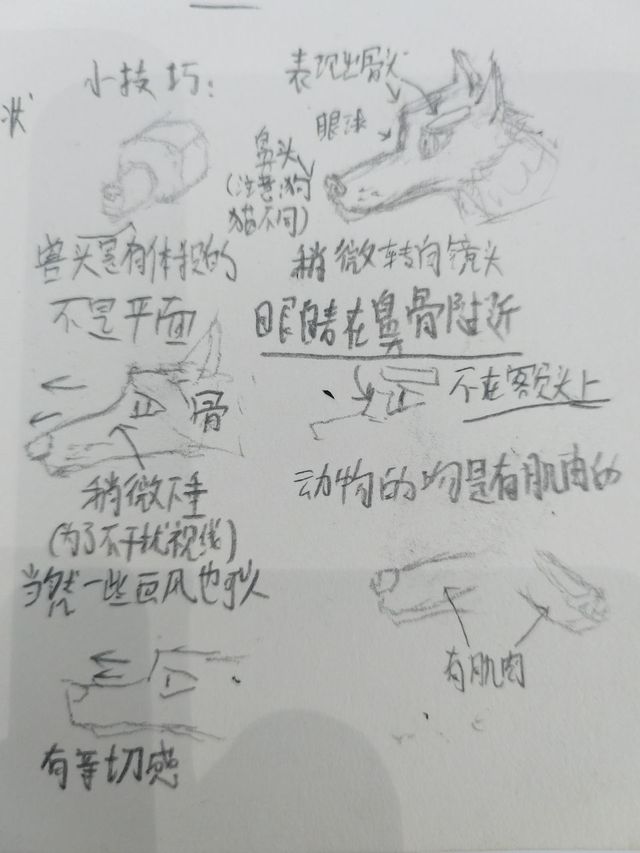 状
小技巧:
表现出骨头
眼球
鼻头
(注意:狗
猫不同)
兽头是有体积的
不是平面
稍微转向镜头
眼睛在鼻骨附近
不在额头上
骨
稍微下垂
(为了不干扰视线)
当然一些画风也可以
动物的吻是有肌肉的
有肌肉
有等切感